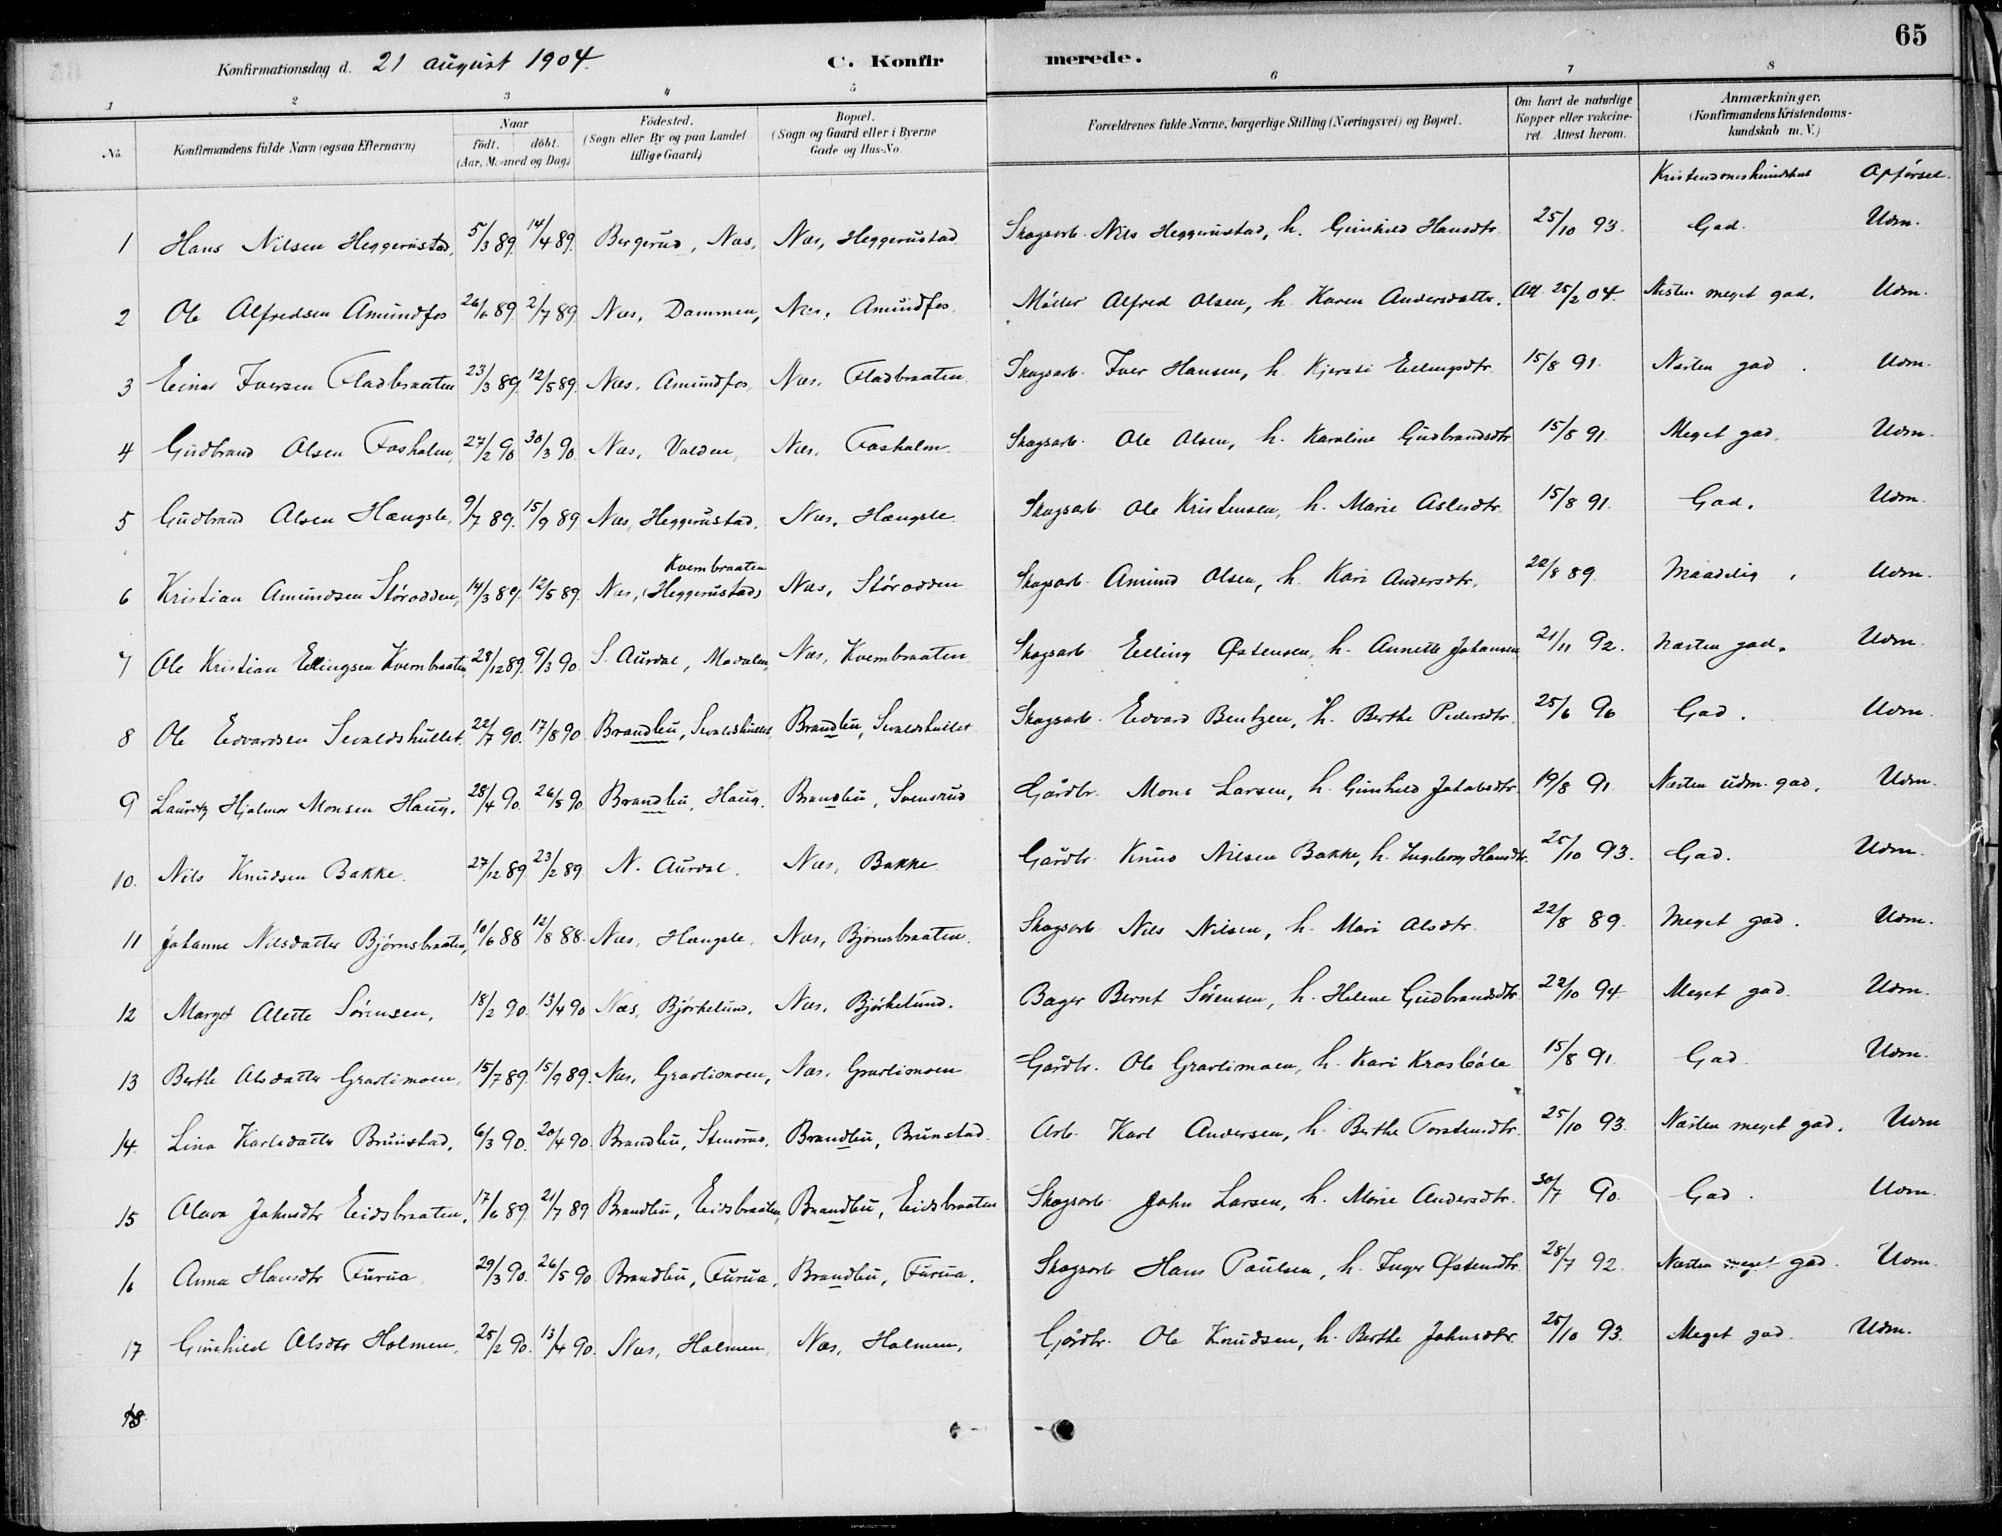 65
Konfirmationsdag d. 21 august 1904. C. Konfirmerede.
1 2 3 4 5 6 7 8
No. Konfirmandens fulde Navn (ogsaa Efternavn) Naar födt. döbt. (Aar, Maaned og Dag.) Födested. (Sogn eller By og paa Landet tillige Gaard.) Bopæl. (Sogn og Gaard eller i Byerne Gade og Hus-No. Forældrenes fulde Navne, borgerlige Stilling (Næringsvei) og Bopæl. Om havt de naturlige Kopper eller vakcineret. Attest herom. Anmærkninger. (Konfirmandens Kristendomskundskab m. V.)
Kristendomskundskab Opførsel.
1 Hans Nilsen Heggerustad, 5/3 89. 14/4 89. Bergerud, Næs, Næs, Heggerustad. Skogsarb. Nils Heggerustad, h. Gunhild Hansdtr. 25/10 93. God. Udm.
2 Ole Alfredsen Amundfos 26/6 89 2/7 89 Næs, Dammen, Næs, Amundfos. Møller Alfred Olsen, h. Karen Andersdatter. Att. 25/2 04. Næsten meget god. Udm.
3 Einar Iversen Fladbraaten 23/3 89. 12/5 89. Næs, Amundfos, Næs, Fladbraaten. Skogsarb. Iver Hansen, h. Kjersti Ellingsdtr. 15/8 91. Næsten god. Udm.
4 Gudbrand Olsen Fosholm, 27/2 90 30/3 90. Næs, Volden, Næs, Fosholm. Skogsarb. Ole Olsen, h. Karoline Gudbrandsdtr. 15/8 91. Meget god. Udm.
5 Gudbrand Olsen Hængsle, 9/7 89. 15/9 89 Næs, Heggerustad. Næs, Hængsle. Skogsarb. Ole Kristensen, h. Marie Aslesdtr. 15/8 91. God. Udm.
6 Kristian Amundsen Størodden, 14/3 89. 12/5 89. Næs, Kvernbraaten (Heggerustad) Næs, Størodden Skogsarb. Amund Olsen, h. Kari Andersdtr. 22/8 89. Maadelig. Udm.
7 Ole Kristian Ellingsen Kvernbraaten, 28/12 89. 9/3 90. S. Aurdal, Modalen, Næs, Kvernbraaten. Skogsarb. Elling Østensen, h. Annette Johansen 21/11 92. Næsten god. Udm.
8 Ole Edvardsen Sevaldshullet. 22/7 90. 17/8 90 Brandbu, Sevaldshullet Brandbu, Sevaldshullet Skogsarb. Edvard Bentzen, h. Berthe Pedersdtr. 25/6 96 God. Udm.
9 Lauritz Hjalmar Monsen Haug. 28/4 90. 26/5 90 Brandbu, Haug. Brandbu, Svensrud Gårdbr. Mons Larsen, h. Gunhild Jakobsdtr. 19/8 91 Næsten udm. god. Udm.
10. Nils Knudsen Bakke. 27/12 89 23/2 89 N. Aurdal. Næs, Bakke. Gårdbr. Knud Nilsen Bakke, h. Ingeborg Hansdtr. 25/10 93. God. Udm.
11 Johanne Nilsdatter Bjørnsbraaten, 10/6 88 12/8 88. Næs, Hængsle. Næs, Bjørnsbraaten. Skogsarb. Nils Nilsen, h. Mari Olsdtr. 22/8 89. Meget god. Udm.
12 Margot Alette Sørensen, 18/2 90. 13/4 90 Næs, Bjørkelund. Næs, Bjørkelund. Bager Bernt Sørensen, h. Helene Gudbrandsdtr. 22/10 94 Meget god. Udm.
13 Berthe Olsdatter Gravlimoen, 15/7 89. 15/9 89. Næs, Gravlimoen, Næs. Gravlimoen Gårdbr. Ole Gravlimoen, h. Kari Krosbøle 15/8 91. God. Udm.
14. Lina Karlsdatter Brunstad, 6/3 90. 20/4 90. Brandbu, Stensrud, Brandbu, Brunstad. Arb. Karl Andersen, h. Berthe Torstensdtr. 25/10 93. Næsten meget god. Udm
15 Olava Johnsdtr Eidsbraaten, 17/6 89. 21/7 89 Brandbu, Eidsbraaten, Brandbu, Eidsbraaten Skogsarb. John Larsen, h. Marie Andersdtr. 30/7 90. God. Udm.
16 Anna Hansdtr Furua. 29/3 90. 26/5 90 Brandbu, Furua, Brandbu, Furua. Skogsarb. Hans Paulsen, h. Inger Østensdtr. 28/7 92. Næsten meget god. Udm.
17 Gunhild Olsdtr Holmen, 25/2 90. 13/4 90. Næs, Holmen, Næs, Holmen, Gårdbr. Ole Knudsen, h. Berthe Johnsdtr. 25/10 93. Meget god. Udm.
18.